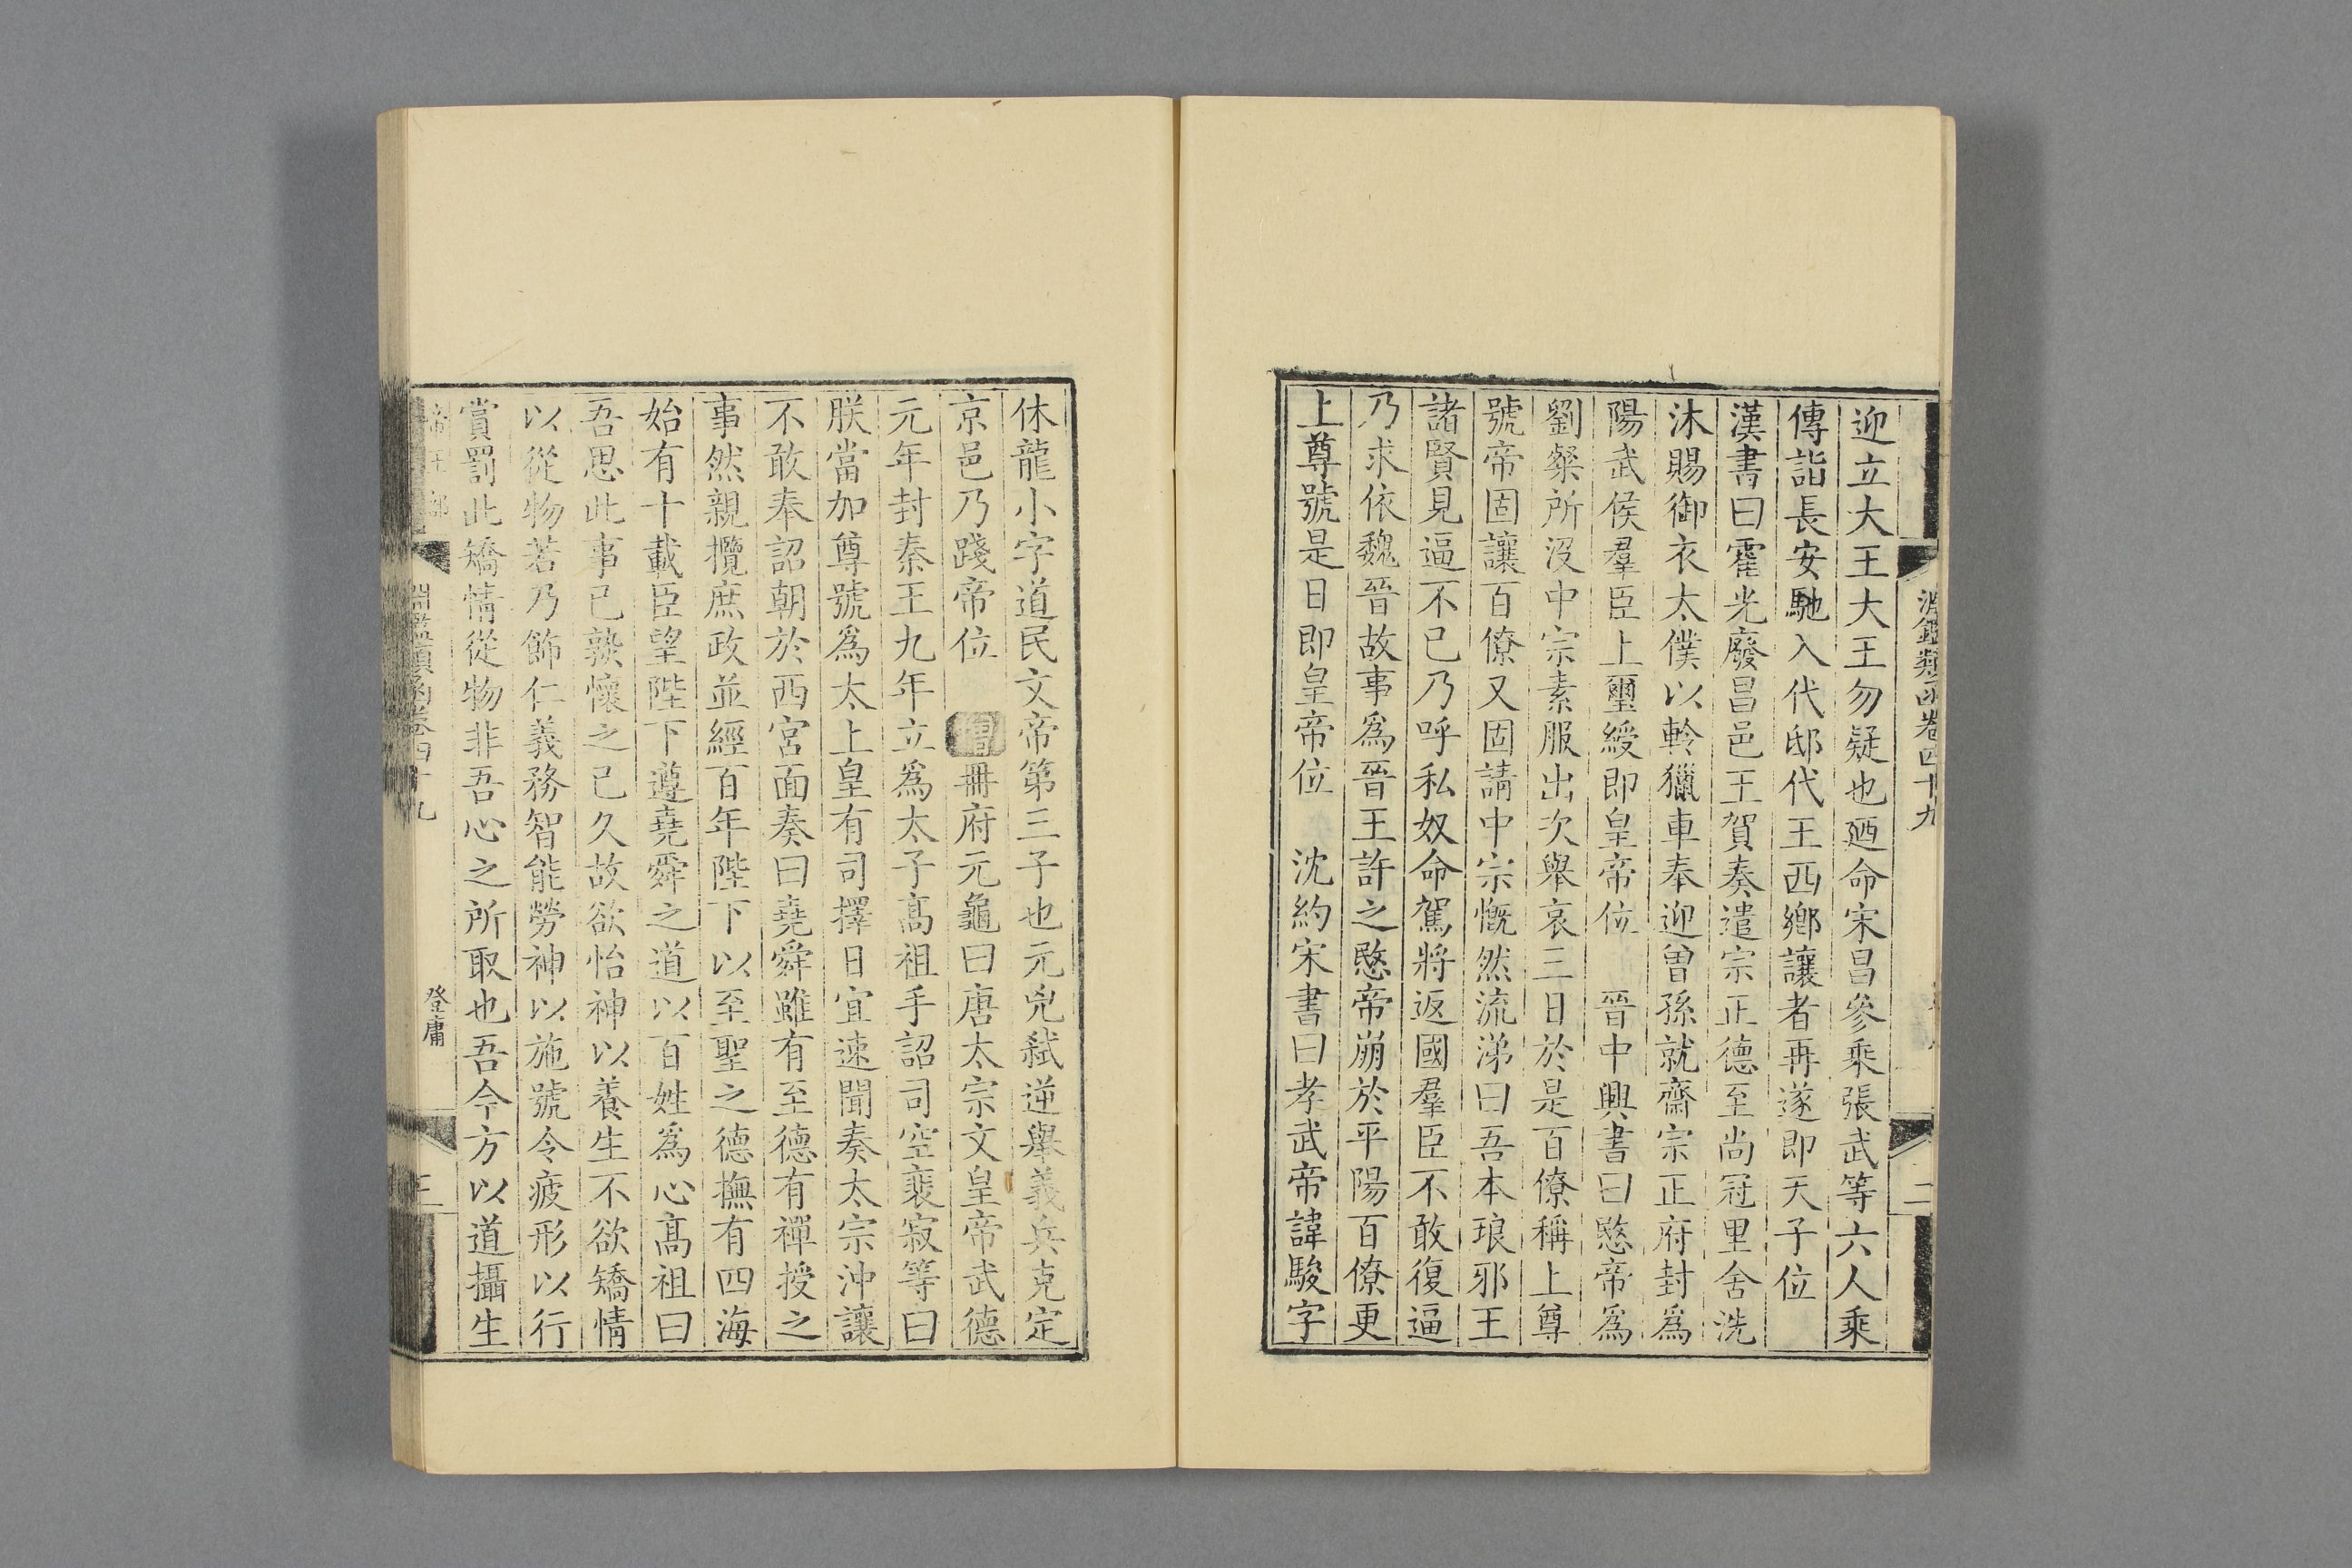 淵鑑類函卷四十九
二
迎立大王大王勿疑也廼命宋昌參乘張武等六人乘
傳詣長安馳入代邸代王西鄉讓者再遂即天子位
漢書曰霍光廢昌邑王賀奏遣宗正德至尚冠里舍洗
沐賜御衣太僕以軨獵車奉迎曾孫就齋宗正府封爲
陽武侯羣臣上璽綬即皇帝位　晉中興書曰愍帝爲
劉粲所沒中宗素服出次舉哀三日於是百僚稱上尊
號帝固讓百僚又固請中宗慨然流涕曰吾本琅邪王
諸賢見逼不已乃呼私奴命駕將返國羣臣不敢復逼
乃求依魏晉故事爲晉王許之愍帝崩於平陽百僚更
上尊號是日即皇帝位　沈約宋書曰孝武帝諱駿字
休龍小字道民文帝第三子也元兇弑逆舉義兵克定
京邑乃踐帝位　增冊府元龜曰唐太宗文皇帝武德
元年封秦王九年立爲太子髙祖手詔司空裴寂等曰
朕當加尊號爲太上皇有司擇日宜速聞奏太宗沖讓
不敢奉詔朝於西宮面奏曰堯舜雖有至德有禪授之
事然親攬庶政並經百年陛下以至聖之德撫有四海
始有十載臣望陛下遵堯舜之道以百姓爲心髙祖曰
吾思此事已熟懷之已久故欲怡神以養生不欲矯情
以從物若乃飾仁義務智能勞神以施號令疲形以行
賞罰此矯情從物非吾心之所取也吾今方以道攝生
帝王部
淵鑑類函卷四十九
登庸
三